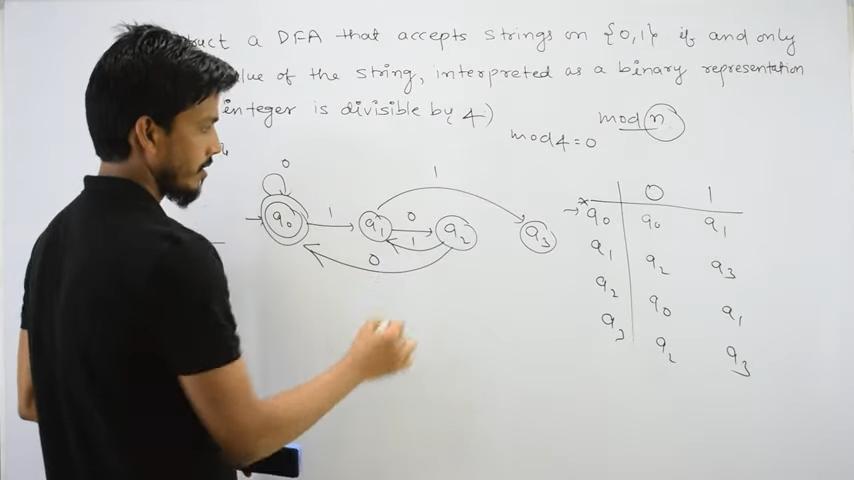 a DFA that accepts strings on {0,1} if and only
of the string, interpreted as a binary representation
integer is divisible by (4)
mod 4 = 0
mod n
0
1
1
0
1
0
q0
q1
q2
q3
0 1
→ * q0 q0 q1
q1 q2 q3
q2 q0 q1
q3 q2 q3